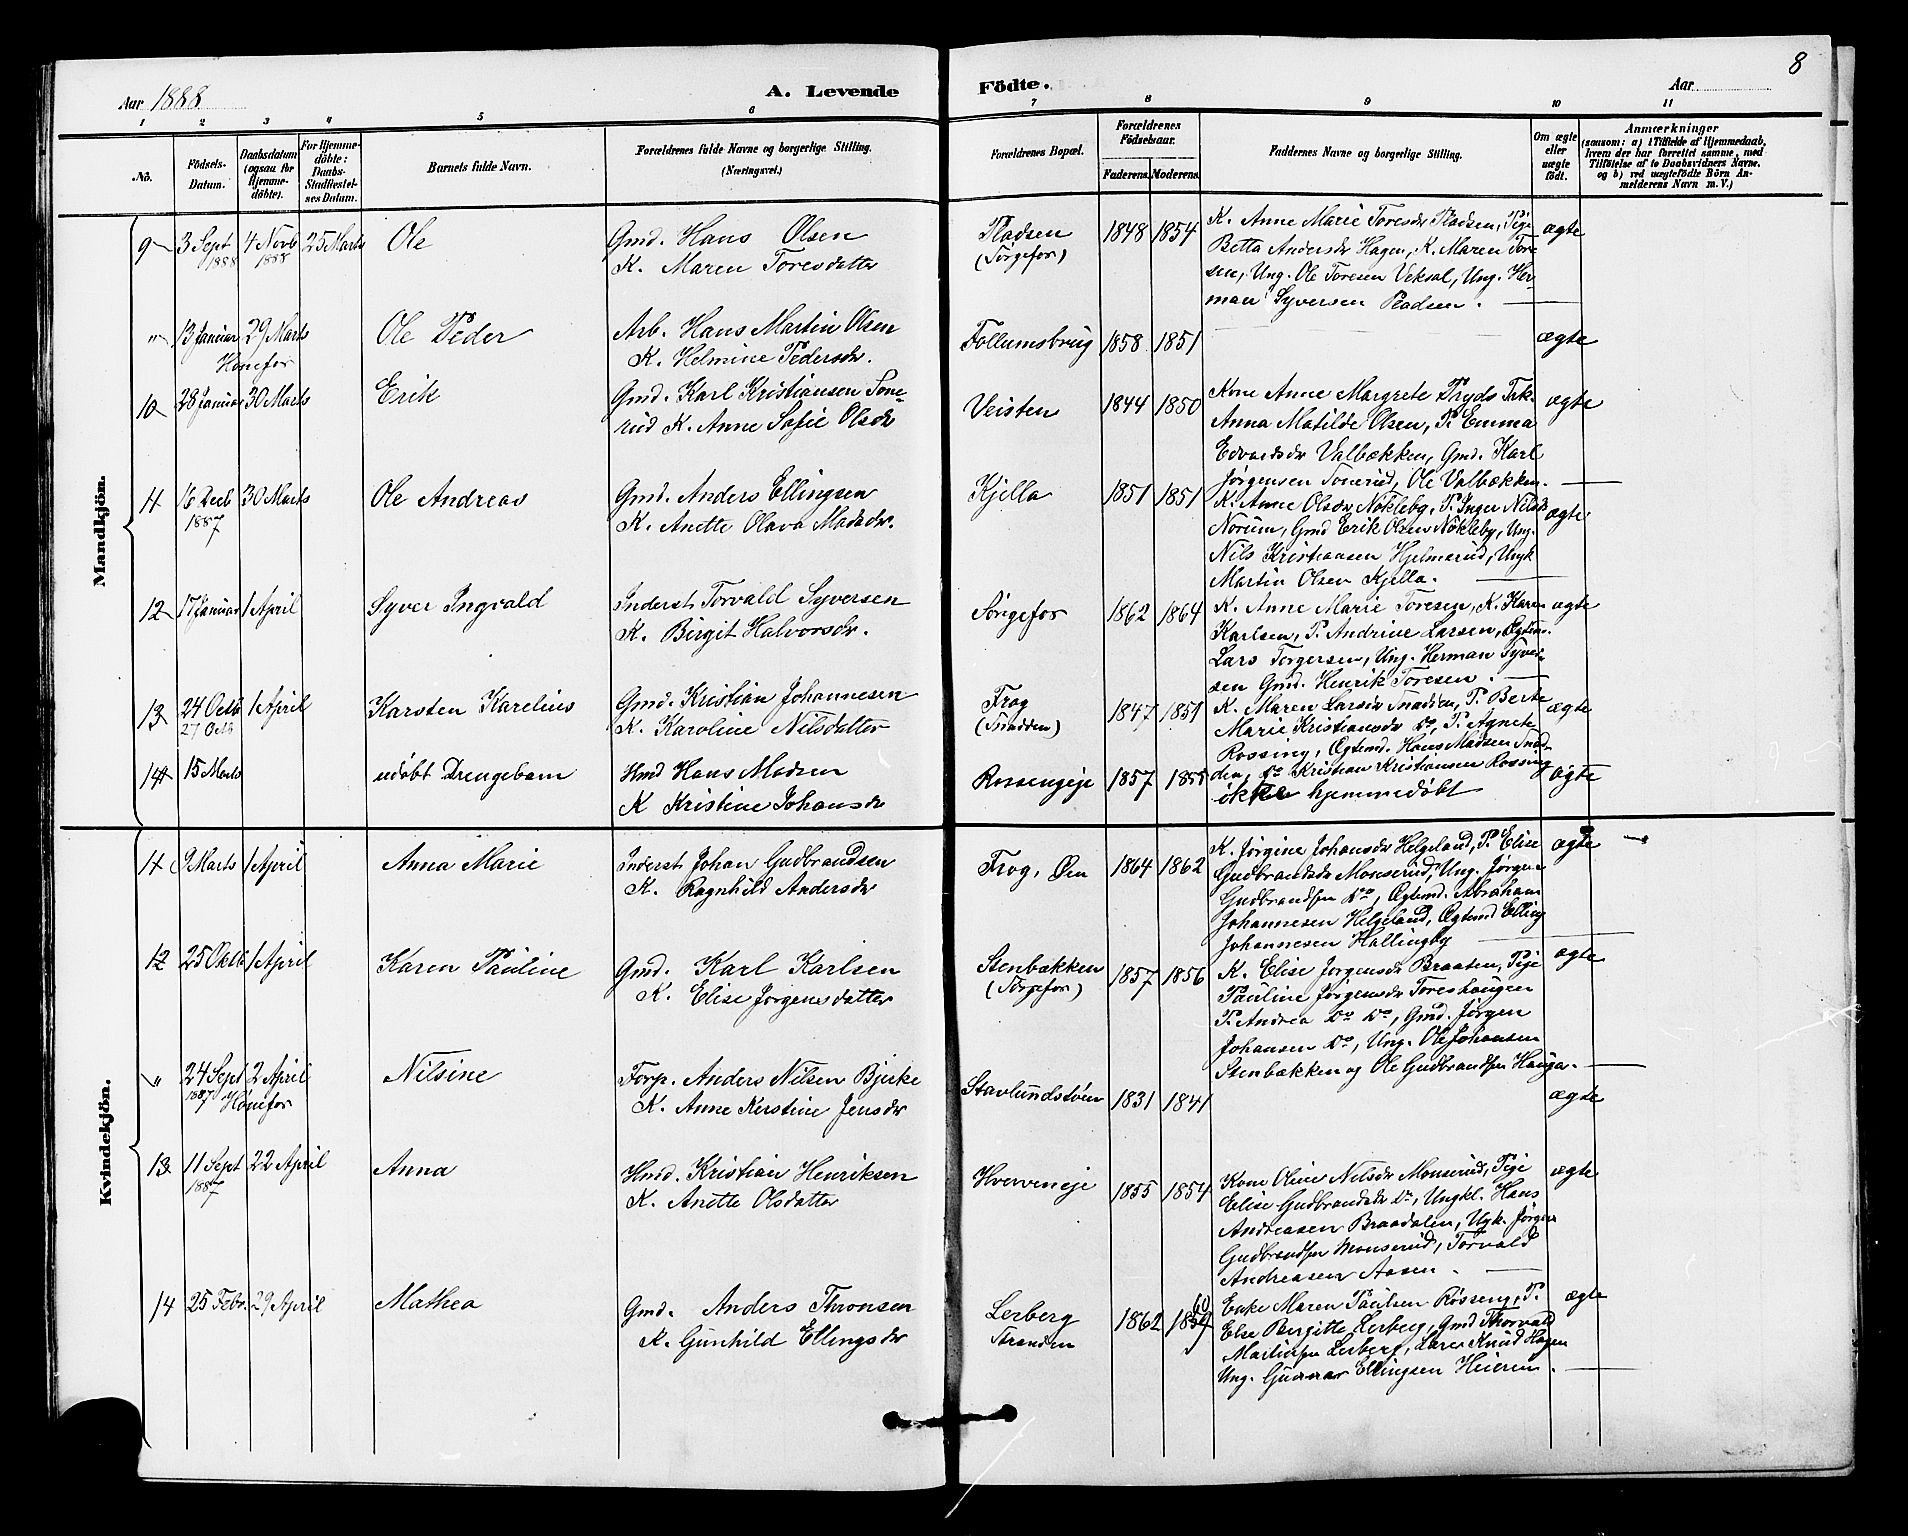 8
Aar 1888
A. Levende
Födte.
Aar
1 2 3 4 5 6 7 8 9 10 11
No.
Födsels-Datum.
Daabsdatum (ogsaa for Hjemme-döbte).
For Hjemme-döbte: Daabs-Stadfæstel-ses Datum.
Barnets fulde Navn.
Forældrenes fulde Navne og borgerlige Stilling.
(Næringsvei.)
Forældrenes Bopæl.
Forældrenes Födselsaar.
Faderens. Moderens.
Faddernes Navne og borgerlige Stilling.
Om ægte eller uægte födt.
Anmærkninger
(saasom: a) i Tilfælde af Hjemmedaab, hvem der har forrettet samme, med Tilföielse af to Daabsvidners Navne. og b) ved uægtefödte Börn An-melderens Navn m. V.)
Mandkjön.
9 3 Sept 1888 4 Novb 1888 25 Marts Ole
Gmd. Hans Olsen
K. Maren Toresdatter
Pladsen (Sørgefos) 1848 1854
K. Anne Marie Toresdr Pladsen, Pige
Betta Andersdr Hagen, K. Maren Tore
sen, Ung. Ole Toresen Veksal, Ung. Her-
man Syversen Pladsen.
ægte
" 13 Januar 29 Marts Hønefos Ole Peder
Arb. Hans Martin Olsen
K. Helmine Pedersdr.
Follumsbrug 1858 1851 ægte
10 28 Januar 30 Marts Erik
Gmd. Karl Kristiansen Tone-
rud K. Anne Sofie Olsdr
Veisten 1844 1850
Kone Anne Margrete
Anna Matilde Olsen, P. Emma
Edvardsdr Valbækken, Gmd. Karl
Jørgensen Tonerud, Ole Valbækken.
ægte
11 16 Decb 1887 30 Marts Ole Andreas
Gmd. Anders Ellingsen
K. Anette Olava Madsdr.
Kjella 1851 1851
K. Anne Olsdr Nøkleby, P. Inger Nilsdr
Norum, Gmd Erik Olsen Nøkleby, Ung.
Nils Kristiansen Hjelmerud, Ungk
Martin Olsen Kjella.
ægte
12 17 Januar 1 April Syver Ingvald
Inderst Torvald Syversen
K. Birgit Halvorsdr.
Sørgefos 1862 1864
K. Anne Marie Toresen, K. Karen
Karlsen, P. Andrine Larsen, Ægtem.
Lars Torgersen, Ung. Herman Syver-
sen Gmd. Henrik Toresen.
ægte
13 24 Octb 27 Octb 1 April Karsten Karelius
Gmd. Kristian Johannesen
K. Karoline Nilsdatter
Frog (Snadden) 1847 1851
K. Maren Larsdr Snadden, P. Berte
Marie Kristiansdr Do, P. Agnete
Rossing, Ægtemd. Hans Madsen Snad-
den, Do Kristian Kristiansen Rossing
ægte
14 15 Marts udøbt Drengebarn
Hmd Hans Madsen
K Kristine Johansdr
Rossengeje 1857 1855
ikke hjemmedøbt
ægte
Kvindekjön.
11 9 Marts 1 April Anna Marie
Inderst Johan Gudbrandsen
K. Ragnhild Andersdr
Frog, Øen 1864 1862
K. Jørgine Johansdr Helgeland, P. Elise
Gudbrandsdr Monserud, Ung. Jørgen
Gudbrandsen Do, Ægtemd. Abraham
Johannesen Helgeland, Ægtemd Elling
Johannesen Hallingby
ægte
12 25 Oktb 1 April Karen Pauline
Gmd. Karl Karlsen
K. Elise Jørgensdatter
Stenbækken (Sørgefos) 1857 1856
K. Elise Jørgensdr Braaten, Pige
Pauline Jørgensdr Toreshaugen
P. Andrea Do Do, Gmd. Jørgen
Johansen Do, Ung. Ole Johansen
Stenbækken og Ole Gudbrandsen Hauga.
ægte
" 24 Sept 1887 2 April Hønefos Nilsine
Forp. Anders Nilsen Bjerke
K. Anne Kerstine Jensdr
Stavlundstøen 1831 1841 ægte
13 11 Sept 1887 22 April Anna
Hmd. Kristian Henriksen
K. Anette Olsdatter
Hverveneje 1855 1854
Kone Oline Nilsdr Monserud, Pige
Elise Gudbrandsdr Do, Ungkl. Hans
Andreasen Braadalen, Ugk. Jørgen
Gudbrandsen Monserud, Torvald
Andreasen Aasen.
ægte
14 25 Febr. 29 April Mathea
Gmd. Anders Thronsen
K. Gunhild Ellingsdr
Lerberg Stranden 1862 1859 60
Enke Maren Paulsen Røsseng, P.
Else Birgitte Lerberg, Gmd Thorvald
Martinsen Lerberg, Lars Knud Hagen
Ung. Gunnar Ellingsen Heieren.
ægte